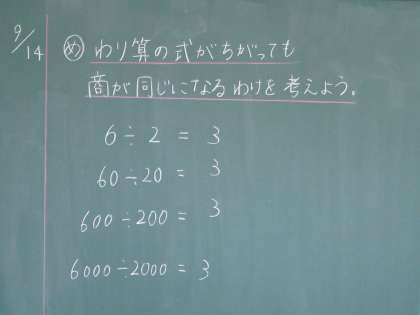 9/14
め わり算の式がちがっても
商が同じになるわけを考えよう。
6÷2 = 3
60÷20 = 3
600÷200 = 3
6000÷2000 = 3